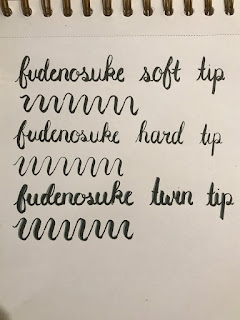 fudenosuke soft tip
fudenosuke hard tip
fudenosuke twin tip